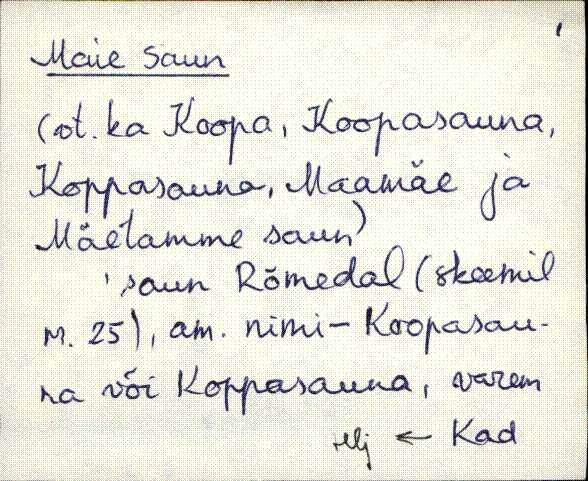 Maie saun
(vt. ka Koopa, Koopasauna,
Koppasauna, Maamäe ja
Mäetamme saun)
'saun Rõmedal (skeemil
nr. 25), am. nimi – Koopasau-
na või Koppasauna, varem
← Kad